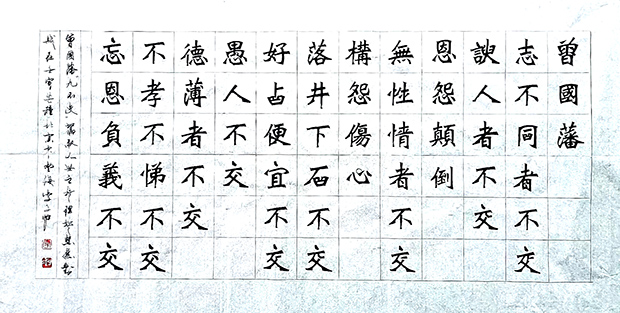 曾國藩
志不同者不交
諛人者不交
恩怨顛倒
無性情者不交
構怨傷心
落井下石不交
好占便宜不交
愚人不交
德薄者不交
不孝不悌不交
忘恩負義不交
曾國藩九不交